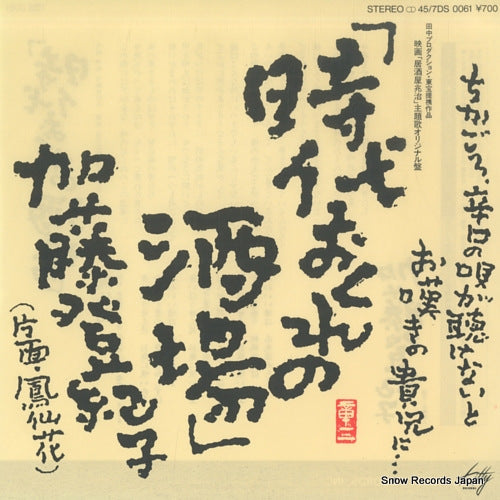 STEREO 45/7DS 0061 ¥700
田中プロダクション・東宝提携作品
映画「居酒屋兆治」主題歌オリジナル盤
ちかごろ、辛口の唄が聴けないと
お嘆きの貴兄に…
「時代おくれの
酒場」
加藤登紀子
(片面・鳳仙花)
Kitty
RECORDS
Snow Records Japan